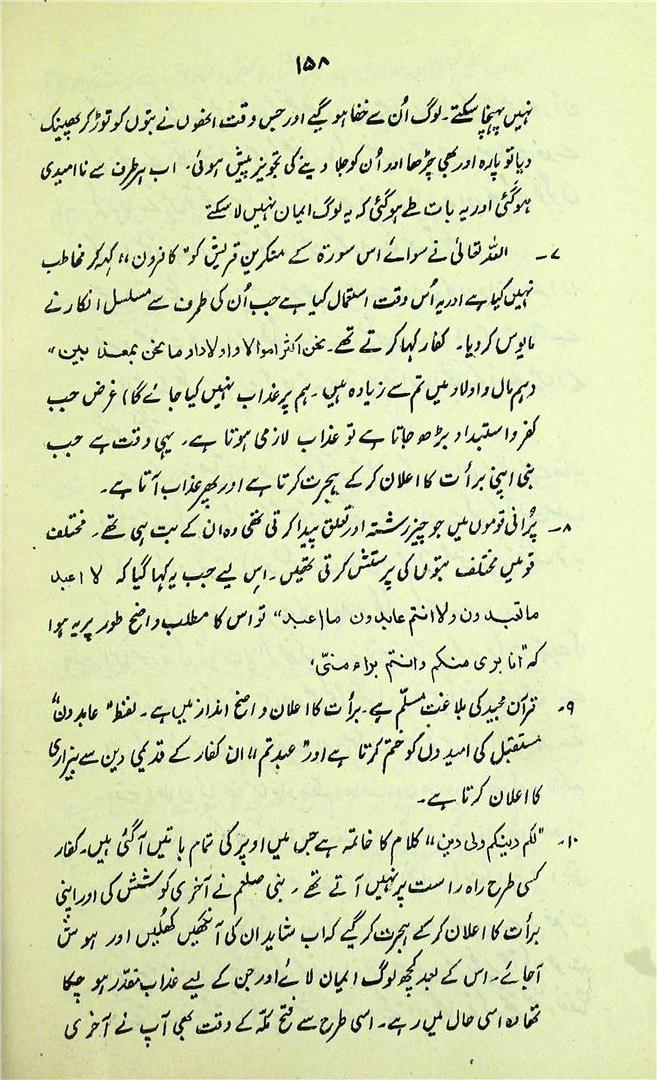 ۱۵۸
نہیں پہنچا سکتے۔ لوگ اُن سے خفا ہو گیے اور جس وقت انھوں نے بتوں کو توڑ کر پھینک
دیا تو پارہ اور بھی چڑھا اور اُن کو جلا دینے کی تجویز پیش ہوئی۔ اب ہر طرف سے نا امیدی
ہو گئی اور یہ بات طے ہو گئی کہ یہ لوگ ایمان نہیں لا سکتے
۷۔ اللہ تعالیٰ نے سوائے اس سورۃ کے منکرین قریش کو "کافرون" کہہ کر مخاطب
نہیں کیا ہے اور یہ اُس وقت استعمال کیا ہے جب اُن کی طرف سے مسلسل انکار نے
مایوس کر دیا۔ کفار کہا کرتے تھے۔ نحن اکثر اموالا و اولادا و ما نحن بمعذبین"
(ہم مال و اولاد میں تم سے زیادہ ہیں۔ ہم پر عذاب نہیں کیا جائے گا) غرض جب
کفر و استبداد بڑھ جاتا ہے تو عذاب لازمی ہوتا ہے۔ یہی وقت ہے جب
نبی اپنی برأت کا اعلان کر کے ہجرت کرتا ہے اور پھر عذاب آتا ہے۔
۸۔ پُرانی قوموں میں جو چیز رشتہ اور تعلق پیدا کرتی تھی وہ ان کے بت ہی تھے۔ مختلف
قومیں مختلف بتوں کی پرستش کرتی تھیں۔ اس لیے جب یہ کہا گیا کہ لا اعبد
ما تعبدون ولا انتم عابدون ما اعبد" تو اس کا مطلب واضح طور پر یہ ہوا
کہ "انا بری منکم و انتم براء منّی'
۹۔ قرآن مجید کی بلاغت مسلّم ہے۔ برأت کا اعلان واضح انداز میں ہے۔ لفظ "عابدون"
مستقبل کی امیدوں کو ختم کرتا ہے اور "عبدتم" ان کفار کے قدیمی دین سے بیزاری
کا اعلان کرتا ہے۔
۱۰۔ "لکم دینکم ولی دین" کلام کا خاتمہ ہے جس میں اوپر کی تمام باتیں آگئی ہیں۔ کفار
کسی طرح راہ راست پر نہیں آتے تھے۔ نبی صلعم نے آخری کوشش کی اور اپنی
برأت کا اعلان کر کے ہجرت کر گیے کہ اب شاید ان کی آنکھیں کھلیں اور ہوش
آجائے۔ اس کے بعد کچھ لوگ ایمان لائے اور جن کے لیے عذاب مقدّر ہو چکا
تھا وہ اسی حال میں رہے۔ اسی طرح سے فتح مکہ کے وقت بھی آپ نے آخری